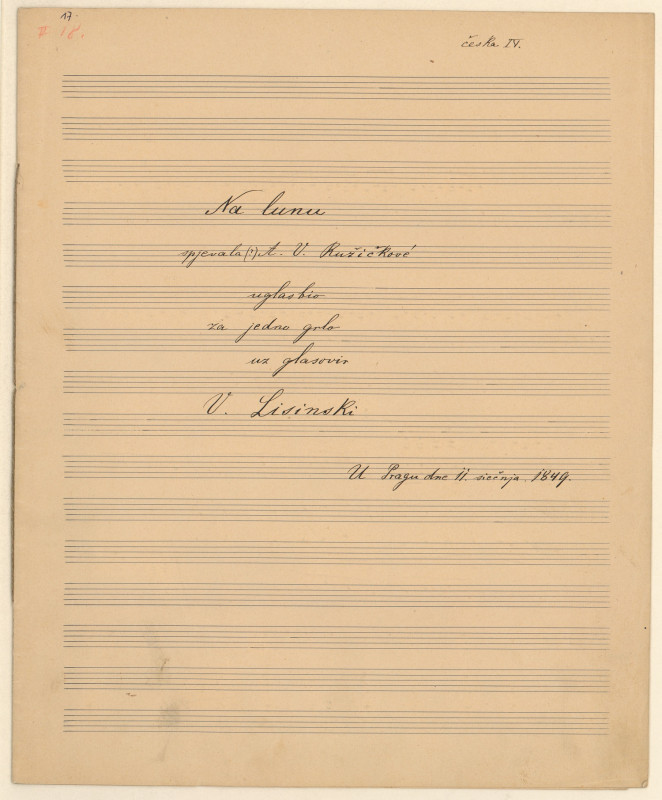 17
# 18.
česka IV.
Na lunu
spjevala (?) A. V. Ružičkové
uglasbio
za jedno grlo
uz glasovir
V. Lisinski
U Pragu dne 11. siečnja. 1849.